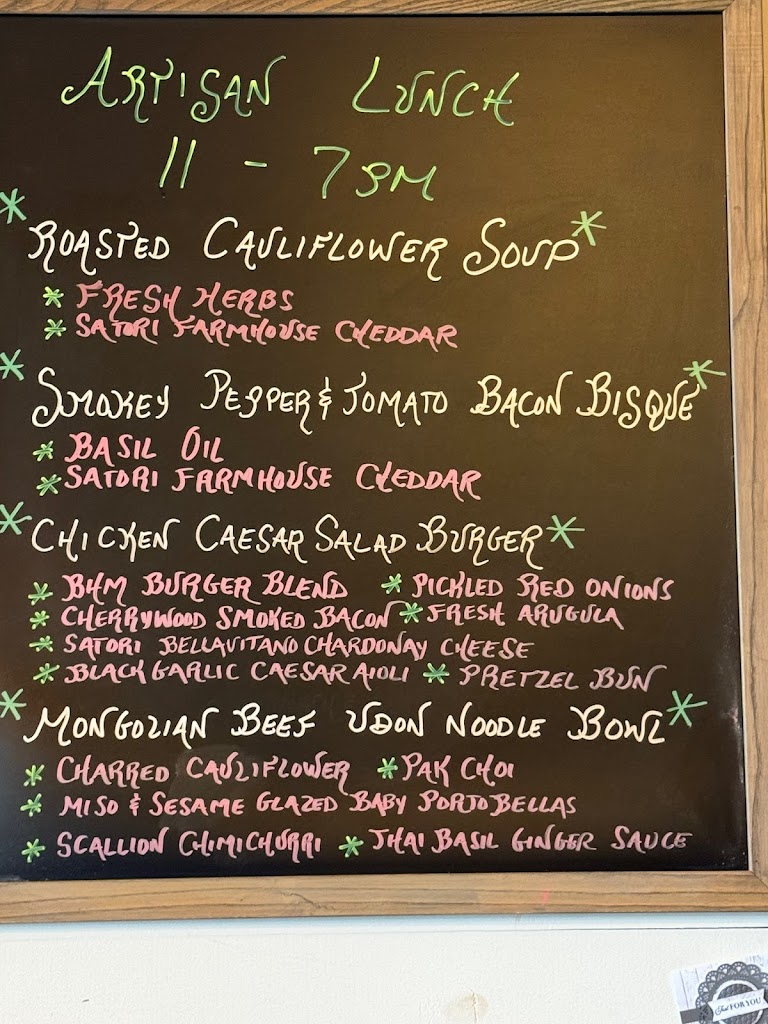 ARTISAN LUNCH
11 - 7PM
* ROASTED CAULIFLOWER SOUP *
* FRESH HERBS
* SATORI FARMHOUSE CHEDDAR
* SMOKEY PEPPER & TOMATO BACON BISQUE *
* BASIL OIL
* SATORI FARMHOUSE CHEDDAR
* CHICKEN CAESAR SALAD BURGER *
* BHM BURGER BLEND * PICKLED RED ONIONS
* CHERRYWOOD SMOKED BACON * FRESH ARUGULA
* SATORI BELLAVITANO CHARDONAY CHEESE
* BLACK GARLIC CAESAR AIOLI * PRETZEL BUN
* MONGOLIAN BEEF UDON NOODLE BOWL *
* CHARRED CAULIFLOWER * PAK CHOI
* MISO & SESAME GLAZED BABY PORTOBELLAS
* SCALLION CHIMICHURRI * THAI BASIL GINGER SAUCE
Just FOR YOU